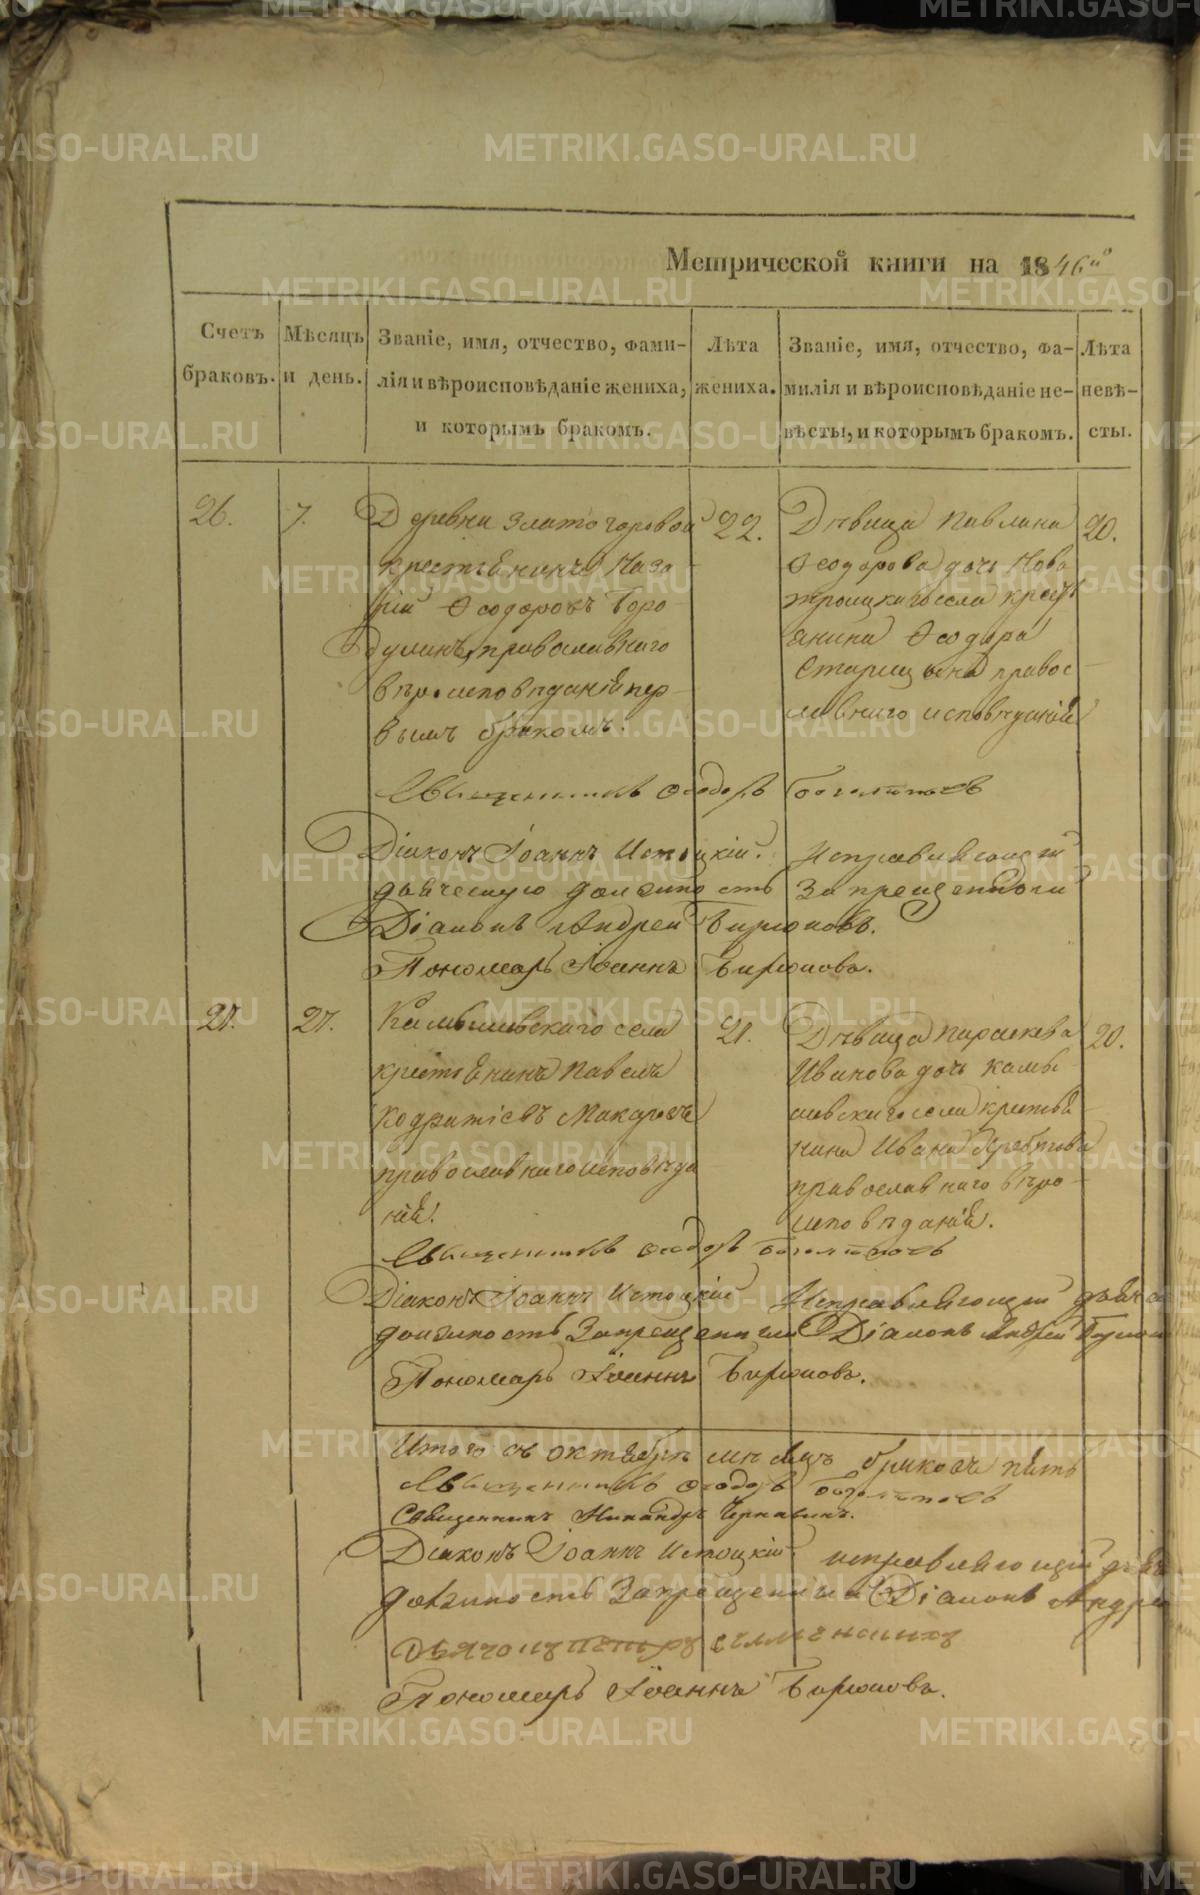 Метрической книги на 1846й
Счетъ браковъ.
Мѣсяцъ и день.
Званіе, имя, отчество, фами-
лія и вѣроисповѣданіе жениха,
и которымъ бракомъ.
Лѣта
жениха.
Званіе, имя, отчество, фа-
милія и вѣроисповѣданіе не-
вѣсты, и которымъ бракомъ.
Лѣта
невѣ-
сты.
26.
7.
Деревни Златогоровой
крестьянинъ
Ѳеодоровъ Боро
дулинъ, православнаго
вѣроисповѣданій пер
вымъ бракомъ.
22.
Дѣвица Павлина
Ѳеодорова дочь Ново
троицкаго села крсть
янина Ѳеодора
Старицына правос
лавнаго исповѣданій
20.
Священникъ Ѳеодоръ
Діаконъ Іоаннъ Истоцкій. Исправляющій
дьяческую должность Запрещенный
Діаконъ Андрей Бирюковъ.
Пономарь Іоаннъ Бирюковъ.
27.
27.
Камышевскаго села
крестьянинъ Павелъ
Кодратіевъ Макаровъ
православнаго исповѣда
ній.
21.
Дѣвица Параскева
Иванова дочь Камы
шевскаго села крестья
нина Ивана
православнаго вѣро
исповѣданій.
20.
Священникъ Ѳеодоръ
Діаконъ Іоаннъ Истоцкій Исправляющій
должность Запрещенный Діаконъ Андрей
Пономарь Іоаннъ Бирюковъ.
Итого въ октябрѣ мѣсяцѣ браковъ пять
Священникъ Ѳеодоръ
Священникъ Никандръ Чернавинъ.
Діаконъ Іоаннъ Истоцкій исправляющій
должность Запрещенный Діаконъ Андрей
Пономарь Іоаннъ Бирюковъ.
METRIKI.GASO-URAL.RU